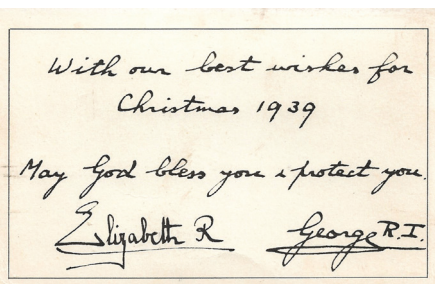 With our best wishes for
Christmas 1939
May God bless you & protect you.
Elizabeth R George R.I.